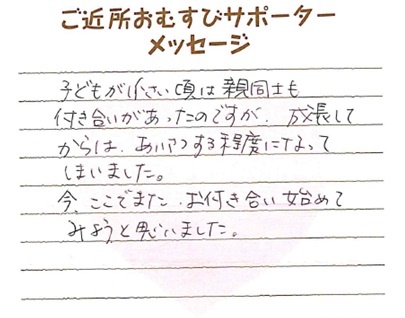 ご近所おむすびサポーター
メッセージ
子どもが小さい頃は親同士も
付き合いがあったのですが、成長して
からは、あいさつする程度になって
しまいました。
今、ここでまた、お付き合い始めて
みようと思いました。